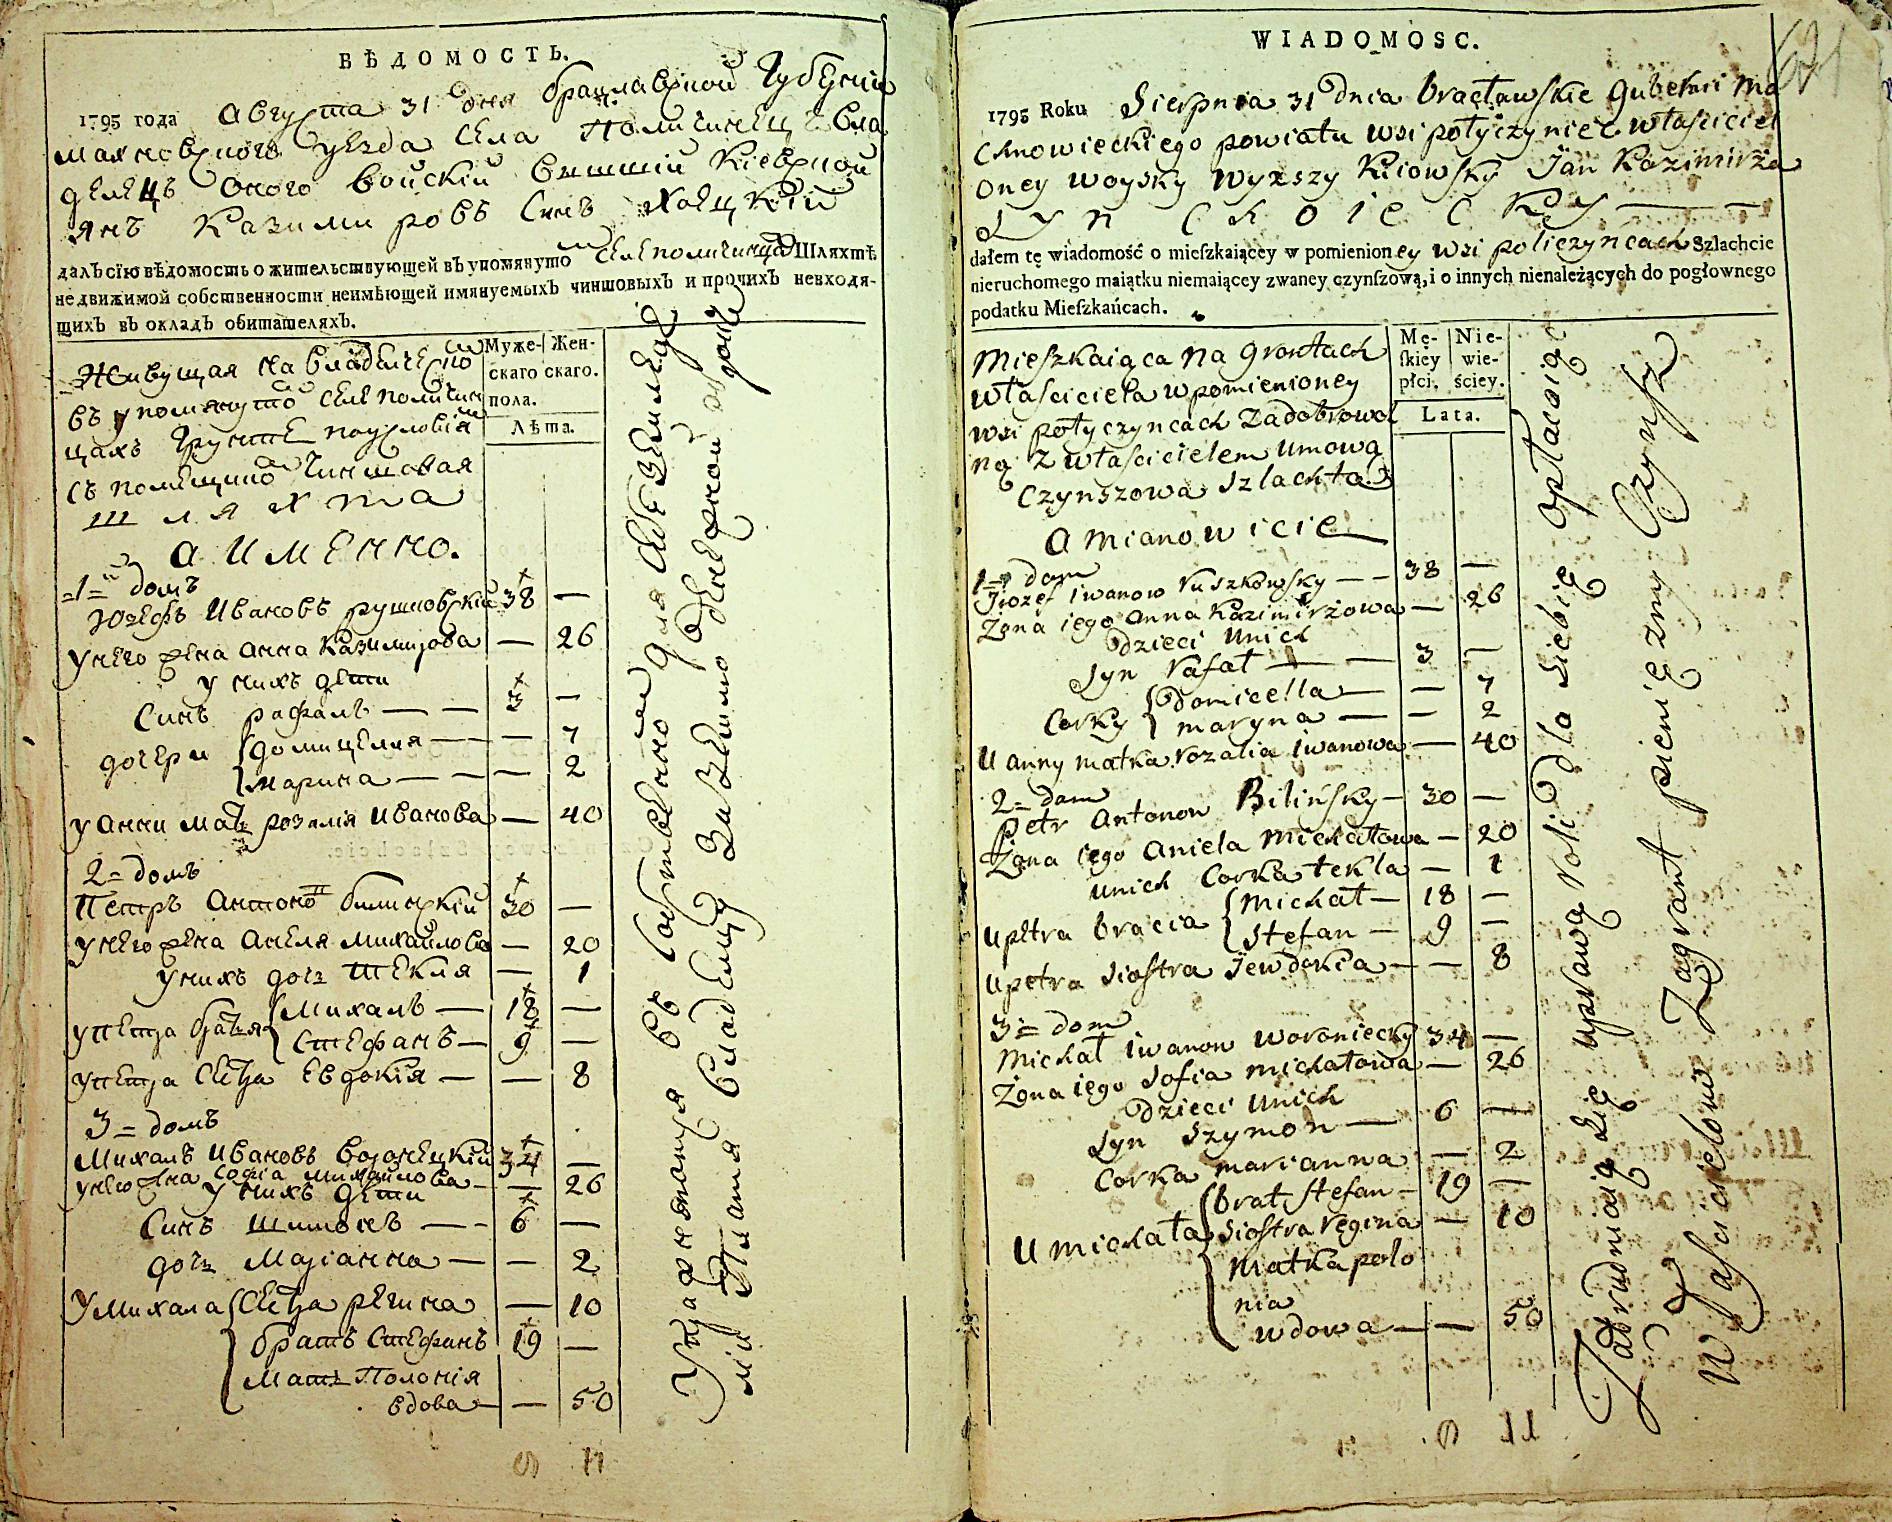 ВѢДОМОСТЬ.
1795 года Августа 31 дня брацлавской Губерніи
махновского уезда села Поличинец Вла
делецъ оного войскій вышшій Кіевской
янъ Казимировъ Синъ Хоецкій
далъ сїю вѣдомость о жительствующей въ упомянуто селе поличинцахъ Шляхтѣ
недвижимой собственности неимѣющей имянуемыхъ чиншовыхъ и прочихъ невходя-
щихъ въ окладъ обитателяхъ.
Муже-
скаго
пола.
Жен-
скаго.
Лѣта.
Живущая на владелческо
въ упомянуто селе поличин
цахъ Грунте поусловія
съ помещико Чиншовая
шляхта
а именно.
1= домъ
Юзефъ Ивановъ рушковскій 38 —
унего жена Анна Казимирова — 26
у нихъ дети
Синъ рафалъ — — 3 —
дочери {домицелля — — 7
{марина — — — 2
у Анни мать розалія Иванова — 40
2= домъ
Петръ Антоно билинскій 30 —
унего жена Анеля Михайлова — 20
унихъ дочь Текля — 1
упетра братья {Михалъ — 18 —
{Стефанъ — 9 —
упетра сестра Евдокія — — 8
3= домъ
Михалъ Ивановъ воронецкій 34 —
унего жена Софіа михайлова — — 26
у нихъ дети
Синъ Шимонъ — — 6 —
дочь Маріанна — — 2
Умихала {Сестра регина — 10
братъ Стефанъ 19 —
Мать Полонія
вдова — — 50
Упражняющаяся въ собственно для себя земледе
лии платя владелцу
WIADOMOSC.
1795 Roku Sierpnia 31 dnia bracławskie guberni Ma
chnowieckiego powiatu wsi połyczyniec właściciel
oney woysky wyższy Kiiowsky Jan Kazimirza
Syn Choiecky —
dałem tę wiadomość o mieſzkaiącey w pomienioney wsi policzyncach Szlachcie
nieruchomego maiątku niemaiącey zwaney czynſzową, i o innych nienależących do pogłownego
podatku Mieſzkańcach.
Mę-
ſkiey
płci.
Nie-
wie-
ściey.
Lata.
Mieszkaiąca na grontach
właściciela wpomienioney
wsi połyczyncach zadobrowol
ną z właścicielem umową
Czynszowa szlachta
a mianowicie
1= dom
Jiozef iwanow Ruszkowsky — — 38 —
Żona iego anna Kazimirzowa — 26
dzieci unich
Syn Rafał — — 3 —
Corky {domicella — — 7
{maryna — — 2
U anny matka rozalia iwanowa — 40
2= dom
Petr antonow Biliński — 30 —
Żona iego aniela michałowa — 20
unich Corka tekla — 1
upetra bracia {michał — 18 —
{Stefan — 9 —
upetra siostra Jewdokia — — 8
3= dom
Michał iwanow woroniecky 34 —
Żona iego Sofia michałowa — 26
dzieci unich
Syn Szymon — 6 —
Corka marianna — 2
U michała {brat stefan — 19 —
siostra regina — 10
matka polo
nia
wdowa — — 50
Zatrudniaią się uprawą roli dla siebie opłacaiąc
właścicielowi Zagrant pieniężny Czynsz